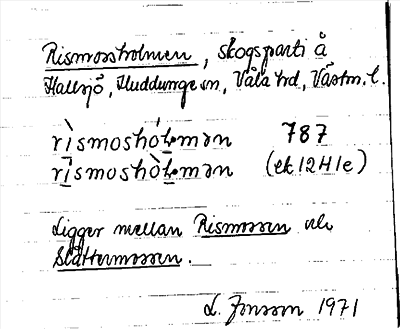 Rismossholmen, skogsparti å
Hallsjö, Huddunge sn, Våla hd, Västm. l.
rìsmoshólmən 787
rìsmoshòlmən (ek 12H1e)
Ligger mellan Rismossen och
Slåttermossen.
L. Jonsson 1971